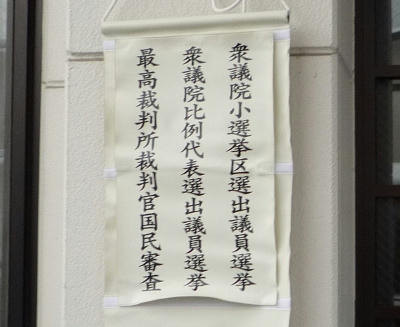 衆議院小選挙区選出議員選挙
衆議院比例代表選出議員選挙
最高裁判所裁判官国民審査